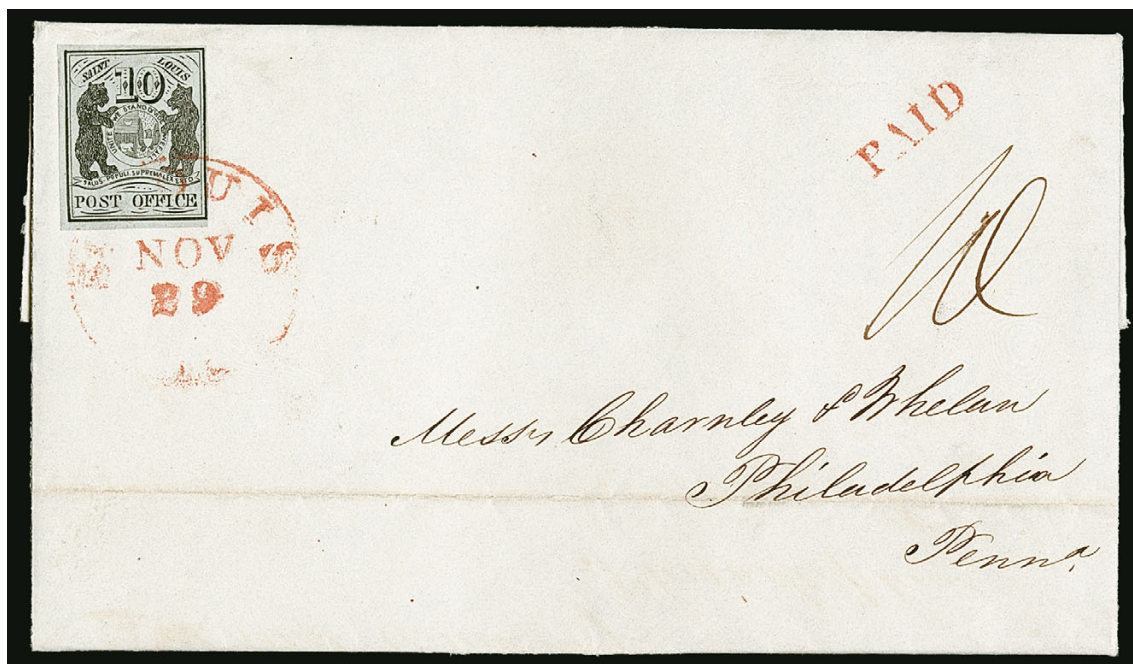 SAINT LOUIS
10
UNITED WE STAND
SALUS POPULI SUPREMA LEX ESTO
POST OFFICE
UIS
NOV
29
PAID
10
Messrs Charnley & Whelan
Philadelphia
Penna.